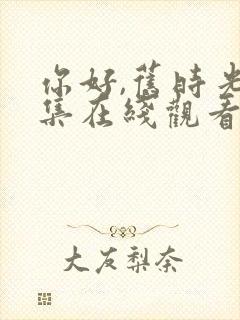 你好,舊時光
集在綫觀看
大友梨奈